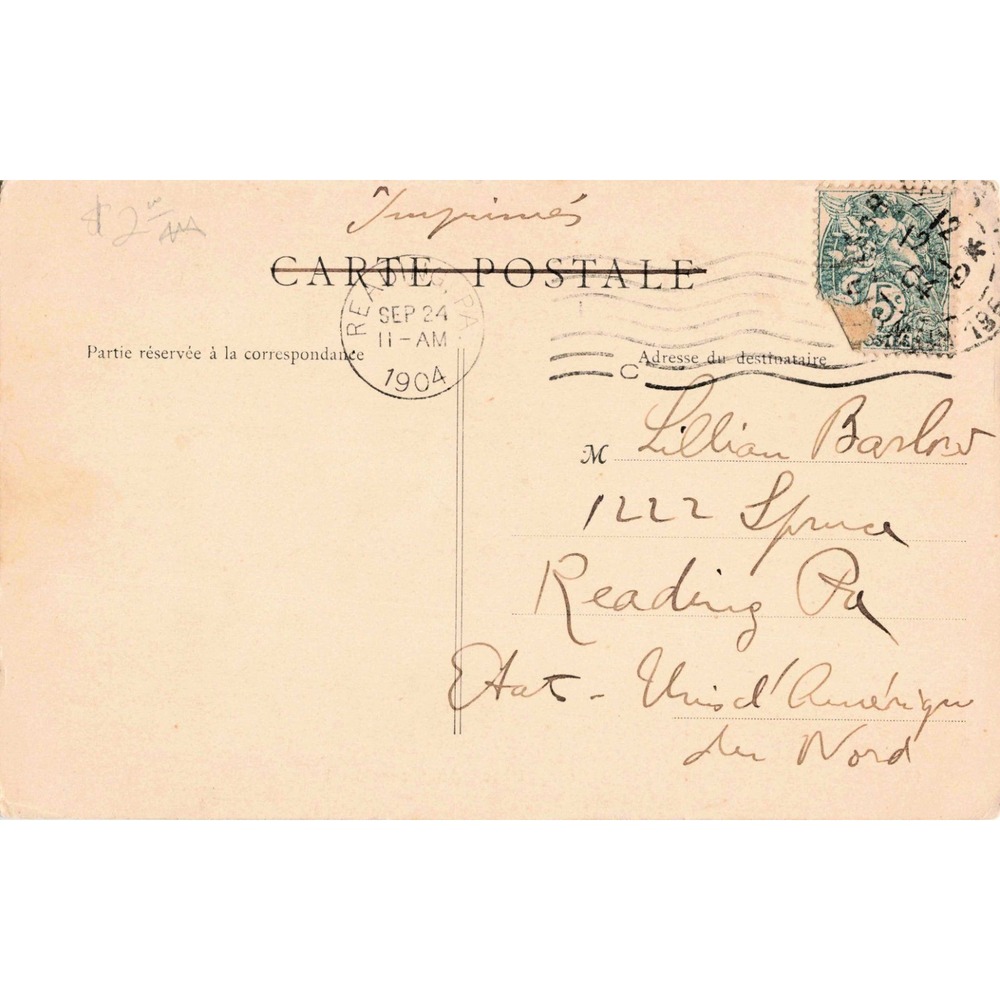 Imprimés
CARTE POSTALE
READING, PA.
SEP 24
11-AM
1904
Partie réservée à la correspondance
Adresse du destinataire
C
5c
M Lillian Barlow
1222 Spruce
Reading Pa
Etats-Unis d'Amérique
du Nord